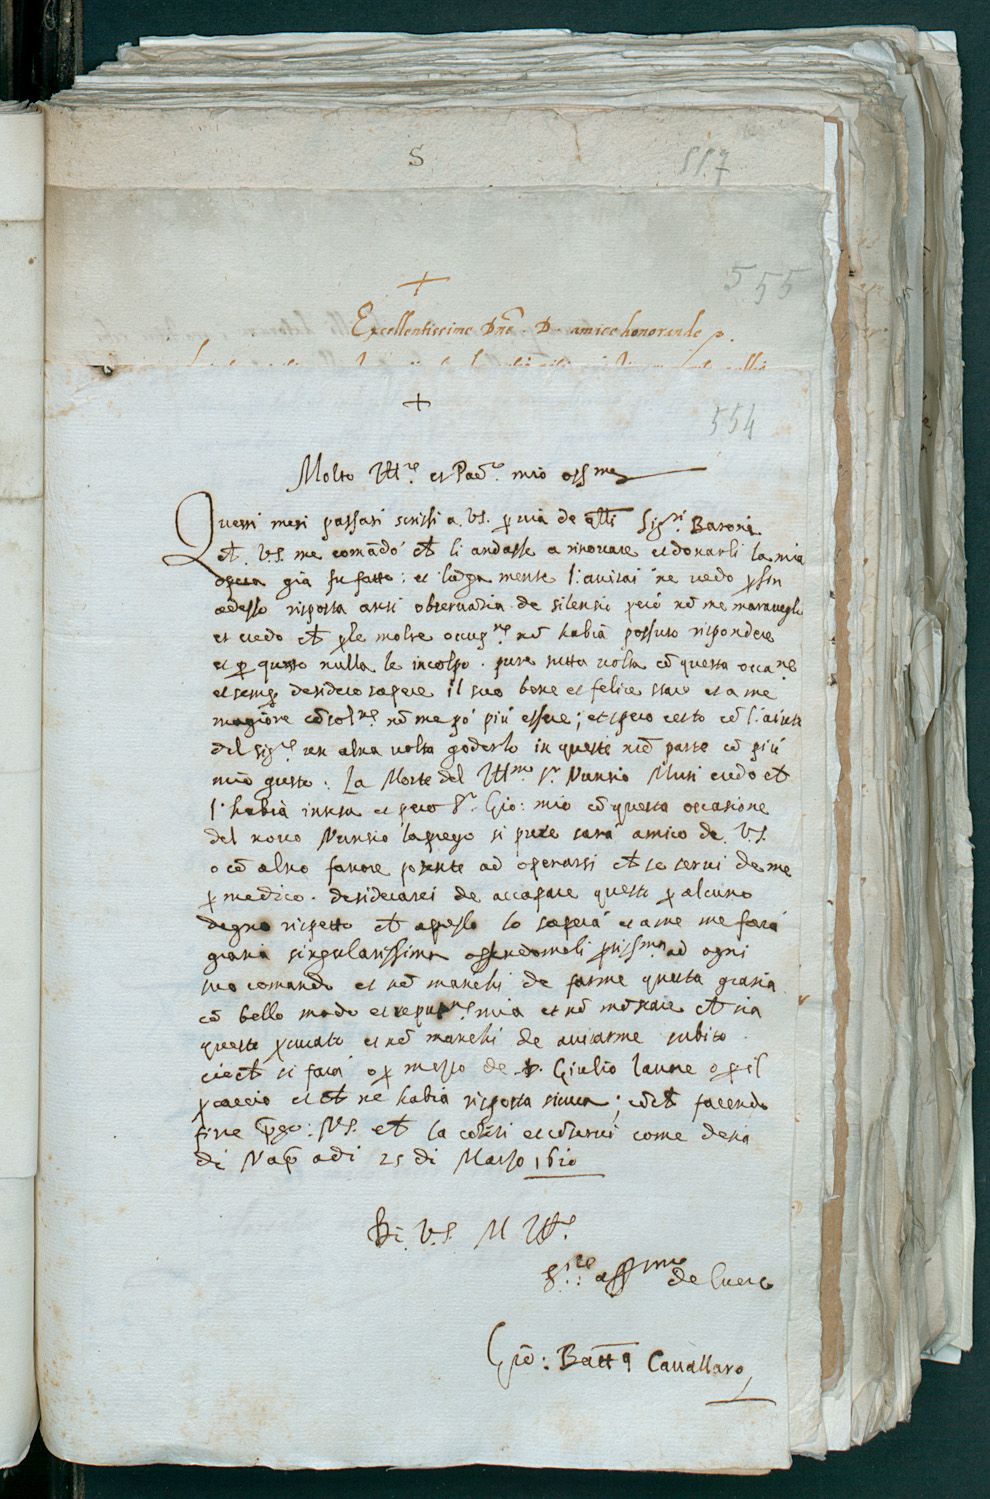 S
557
+
555
Excellentissime Dñe D. amice honorande p.
+
554
Molto Ill.re et Pad.e mio oss.mo
Questi mesi passati scrissi a. V.S. p via de Sig.ri Baroni
et. V.S. me comādò ch li andasse a ritrovare et donarli la mia
opera già fu fatto: et lūga mente l'avisai ne vedo p sin
adesso risposta anzi observāza de silenzio però nō me maraveglio
et credo ch p le molte occup.ne nō habià possuto rispondere
et p questo nulla le incolpo. pure tutta volta cō questa occa.ne
et semp desidero sapere il suo bene et felice stato et a me
magiore cōsol.ne nō me pò più essere; et spero certo cō l'aiuto
del sig.re un altra volta goderlo in queste nr̄e parte cō più
mio gusto: La Morte del Ill.mo s.r Nunzio Muti credo ch
l'habià intesa et però S.r Gio: mio cō questa occasione
del novo Nunzio la prego si pure sarà amico de. V.S.
o cō altro favore potente ad operarsi ch se servi de me
p medico. desiderarei de accapare questo p alcuno
degno rispetto ch apresso lo saperà et a me me farà
grazia singularissima offrendomeli ad ogni
suo comando et nō manchi de farme questa grazia
cō bello modo et reput.ne mia et nō mōstrare ch sia
questo p curato et nō manchi de avisarme subito
ciò ch si farà o p mezzo de s. Giulio Iasone o p il
p caccio et ch ne habia risposta sicura; cō ch facendo
fine V.S. ch la cōsoli et cōservi come desia
di Nap adi 25 di Marzo 1610
Di. V.S. M Ill.e
S.re aff.mo de cuore
Giō: Batt.a Cavallaro